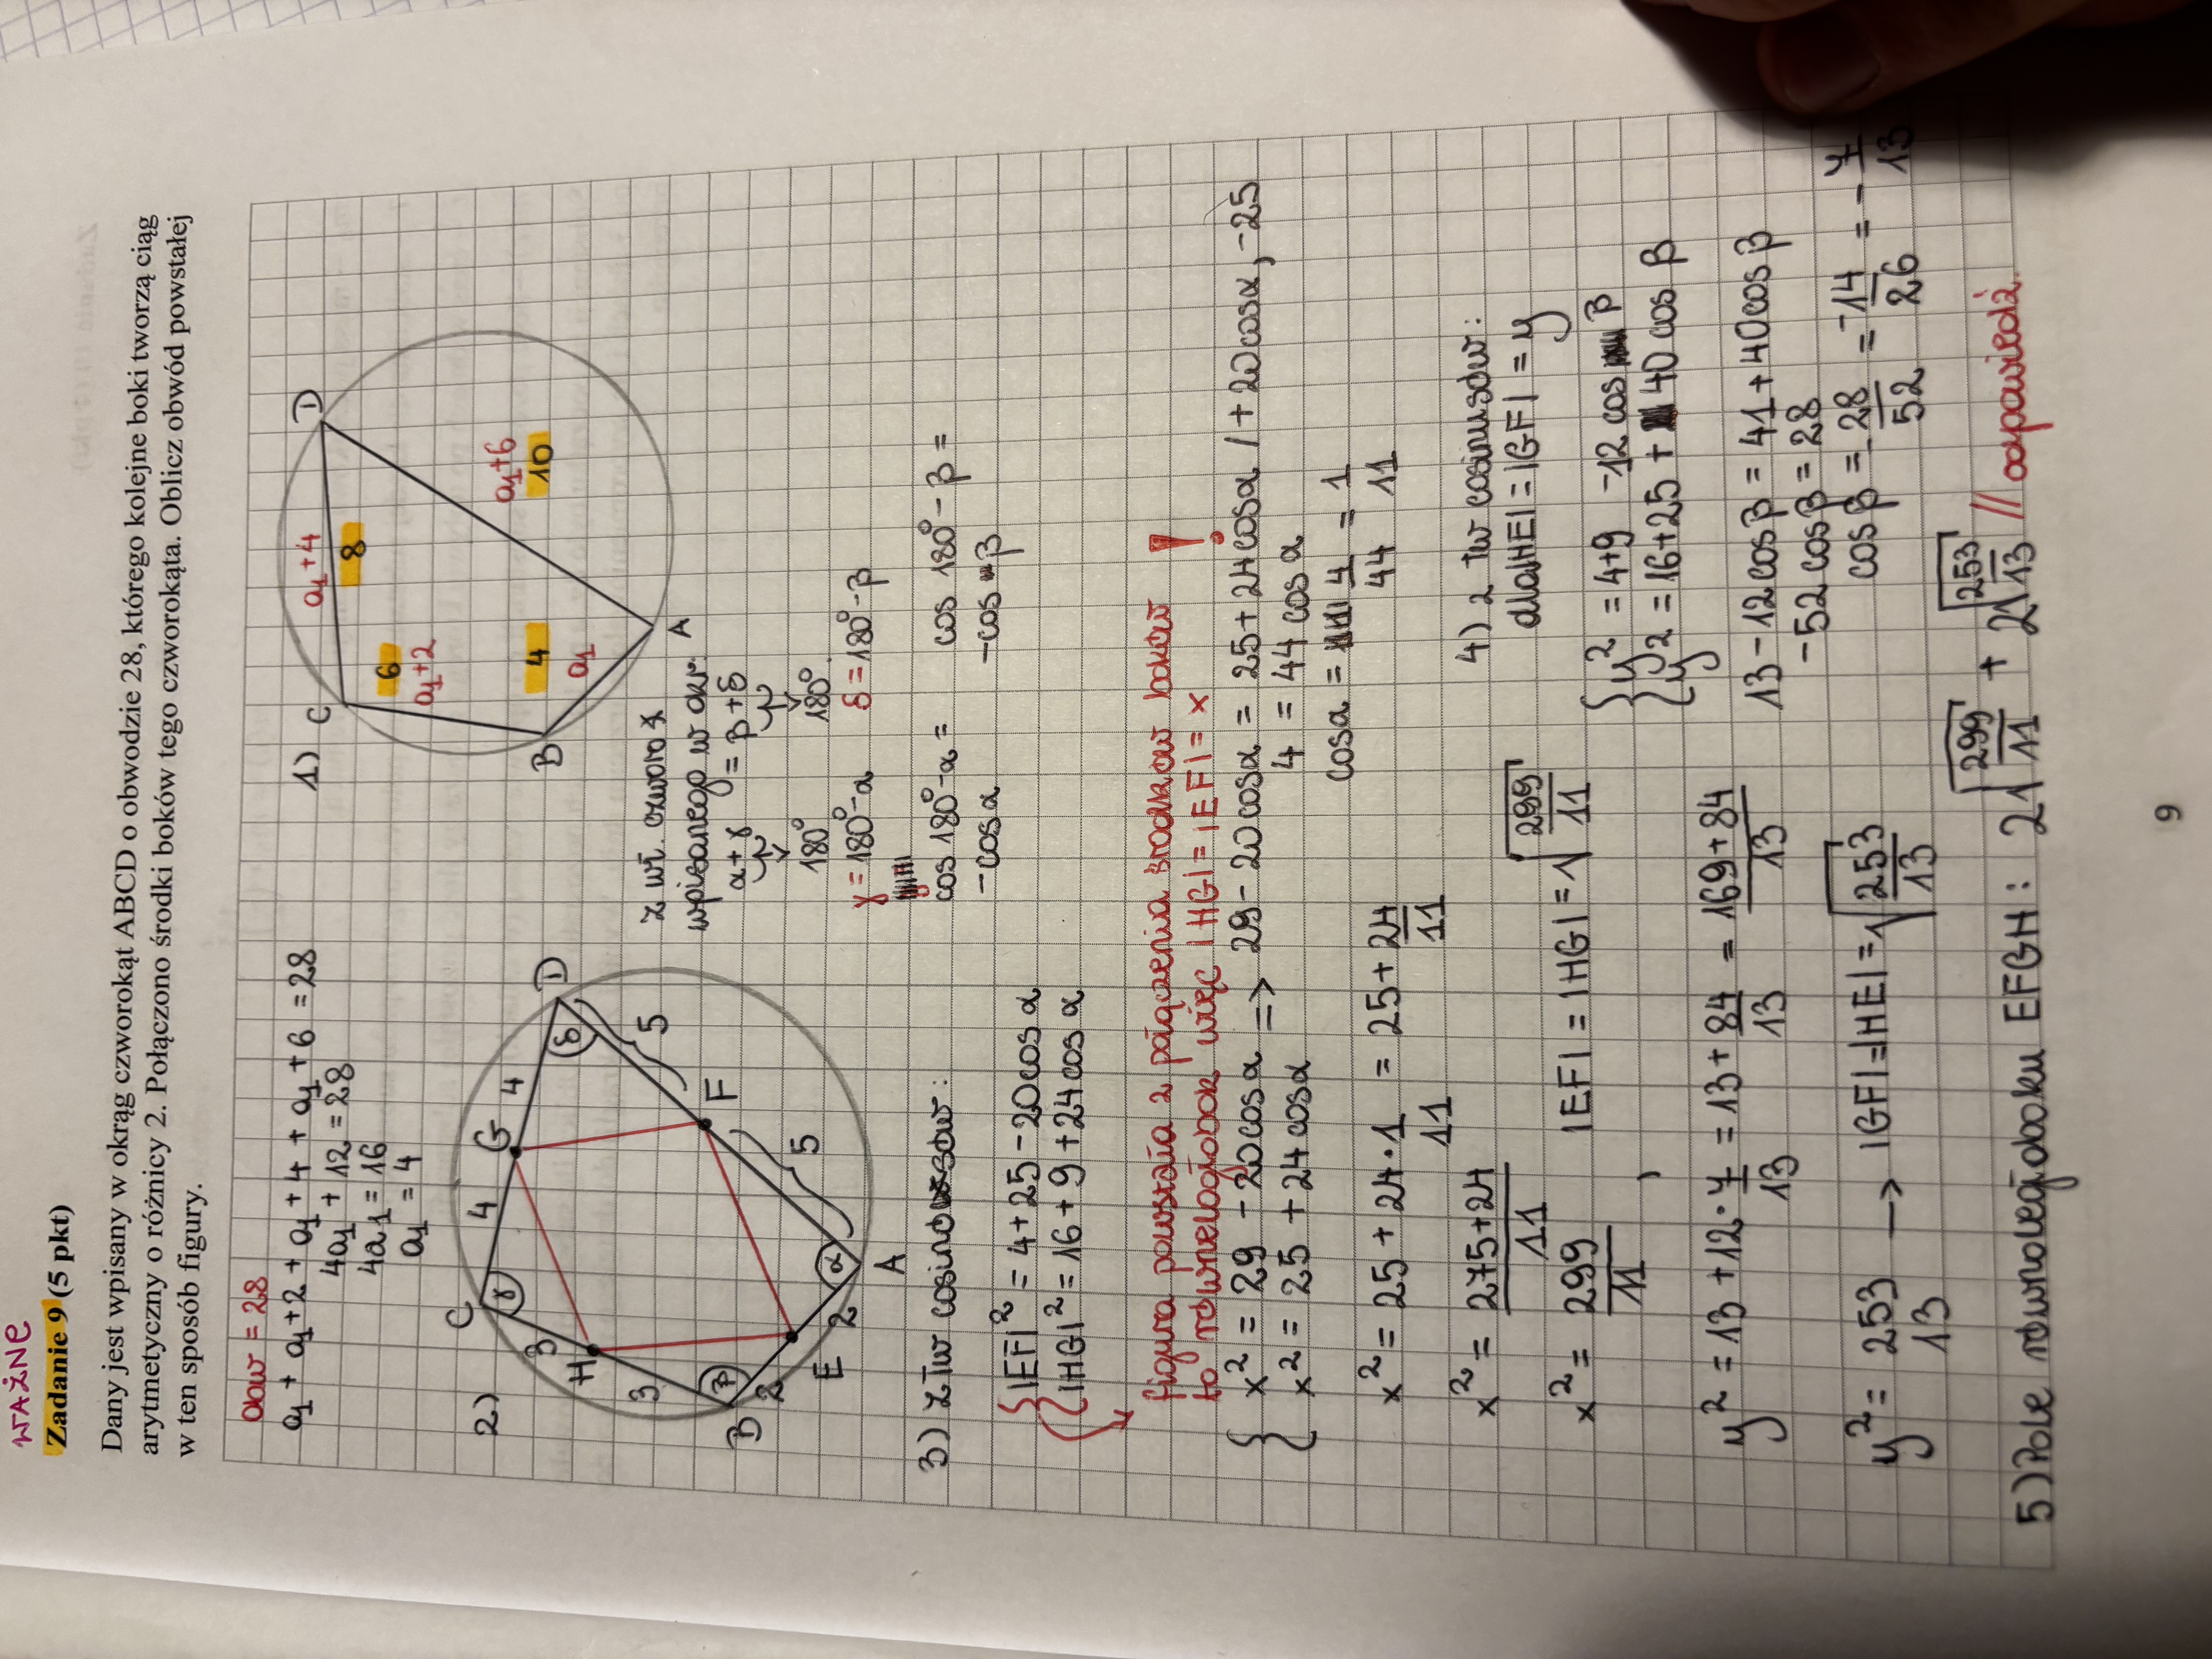 WAŻNE
Zadanie 9 (5 pkt)
Dany jest wpisany w okrąg czworokąt ABCD o obwodzie 28, którego kolejne boki tworzą ciąg
arytmetyczny o różnicy 2. Połączono środki boków tego czworokąta. Oblicz obwód powstałej
w ten sposób figury.
Obw = 28
a₁ + a₁+2 + a₁+4 + a₁+6 = 28
4a₁ + 12 = 28
4a₁ = 16
a₁ = 4
1)
C
D
a₁+4
8
6
a₁+2
a₁+6
10
4
a₁
B
A
2)
C
γ
4
G
4
D
δ
3
H
3
5
F
5
B
β
2
E
2
α
A
z wł. czworo∡
wpisanego w okr:
α+γ = β+δ
180° 180°
γ = 180°-α δ = 180°-β
cos 180°-α = cos 180°-β =
-cosα -cosβ
3) z tw cosinusów:
|EF|² = 4+25-20cosα
|HG|² = 16+9+24cosα
figura powstała z połączenia środków boków !
to równoległobok więc |HG|=|EF|= x
x² = 29 - 20cosα => 29-20cosα = 25+24cosα /+20cosα, -25
x² = 25 + 24cosα 4 = 44cosα
cosα = 4/44 = 1/11
x² = 25 + 24·1/11 = 25+24/11
x² = 275+24/11
x² = 299/11 , |EF| = |HG| = √299/11
4) z tw cosinusów:
dla |HE| = |GF| = y
y² = 4+9 -12cosβ
y² = 16+25+40cosβ
13-12cosβ = 41+40cosβ
-52cosβ = 28
cosβ = -28/52 = -14/26 = -7/13
y² = 13+12·7/13 = 13+84/13 = 169+84/13
y² = 253/13 → |GF|=|HE|=√253/13
5) Pole równoległoboku EFGH: 2√299/11 + 2√253/13 // odpowiedź.
9